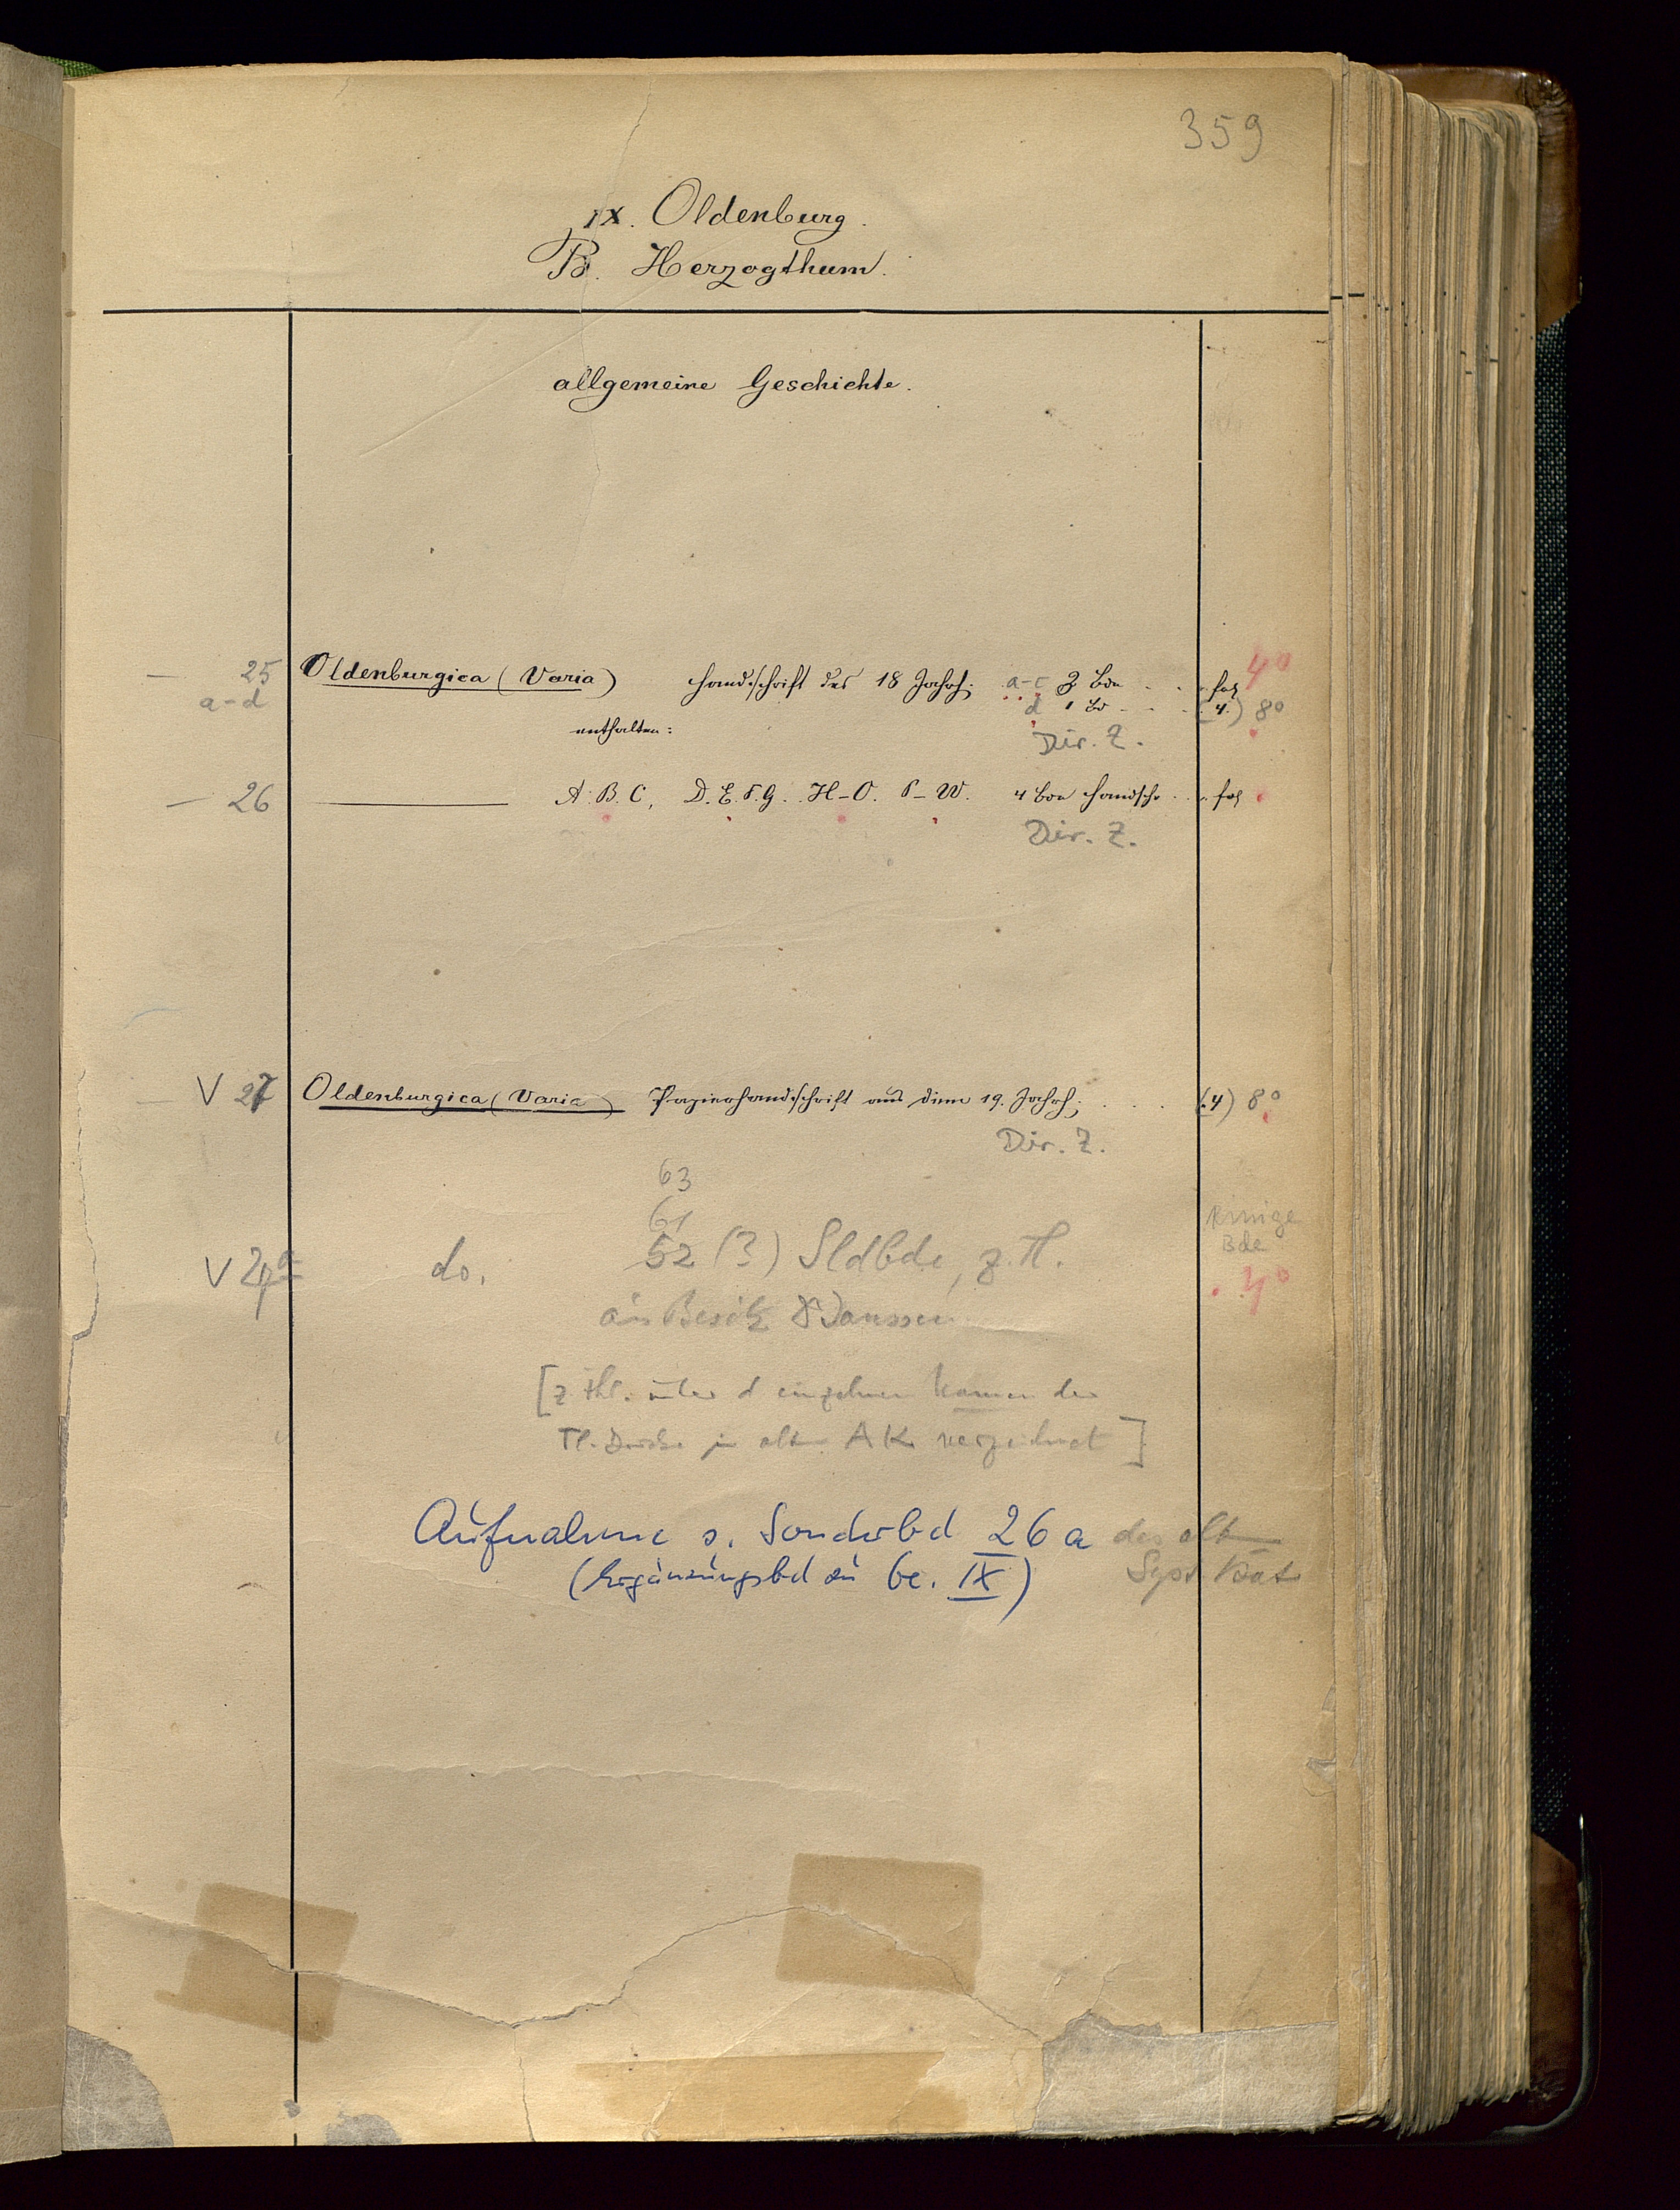 359
IX. Oldenburg.
B. Herzogthum.
allgemeine Geschichte.
— 25 Oldenburgica (Varia) Handschrift des 18 Jahrh. a-c 3 Bde . . . fol 4°
a-d d 1 Bd . . . (4.) 8°
enthalten:
Dir. Z.
— 26 ——— A. B. C, D. E. F. G. H-O. P-W. 4 Bde Handschr . . fol
Dir. Z.
— V 27 Oldenburgica (Varia) Papierhandschrift aus dem 19. Jahrh; . . . . (4) 8°
Dir. Z.
63
61
V 27a do. 52 (?) Sldbde, z. Tl. einige Bde 4°
aus Besitz Janssen
[z Thl. unter d einzelnen Namen der
Tl. Drucke im alten AK verzeichnet]
Aufnahme s. Sonderbd 26a des alt
(Ergänzungsbd zu Ge. IX) Syst Kat